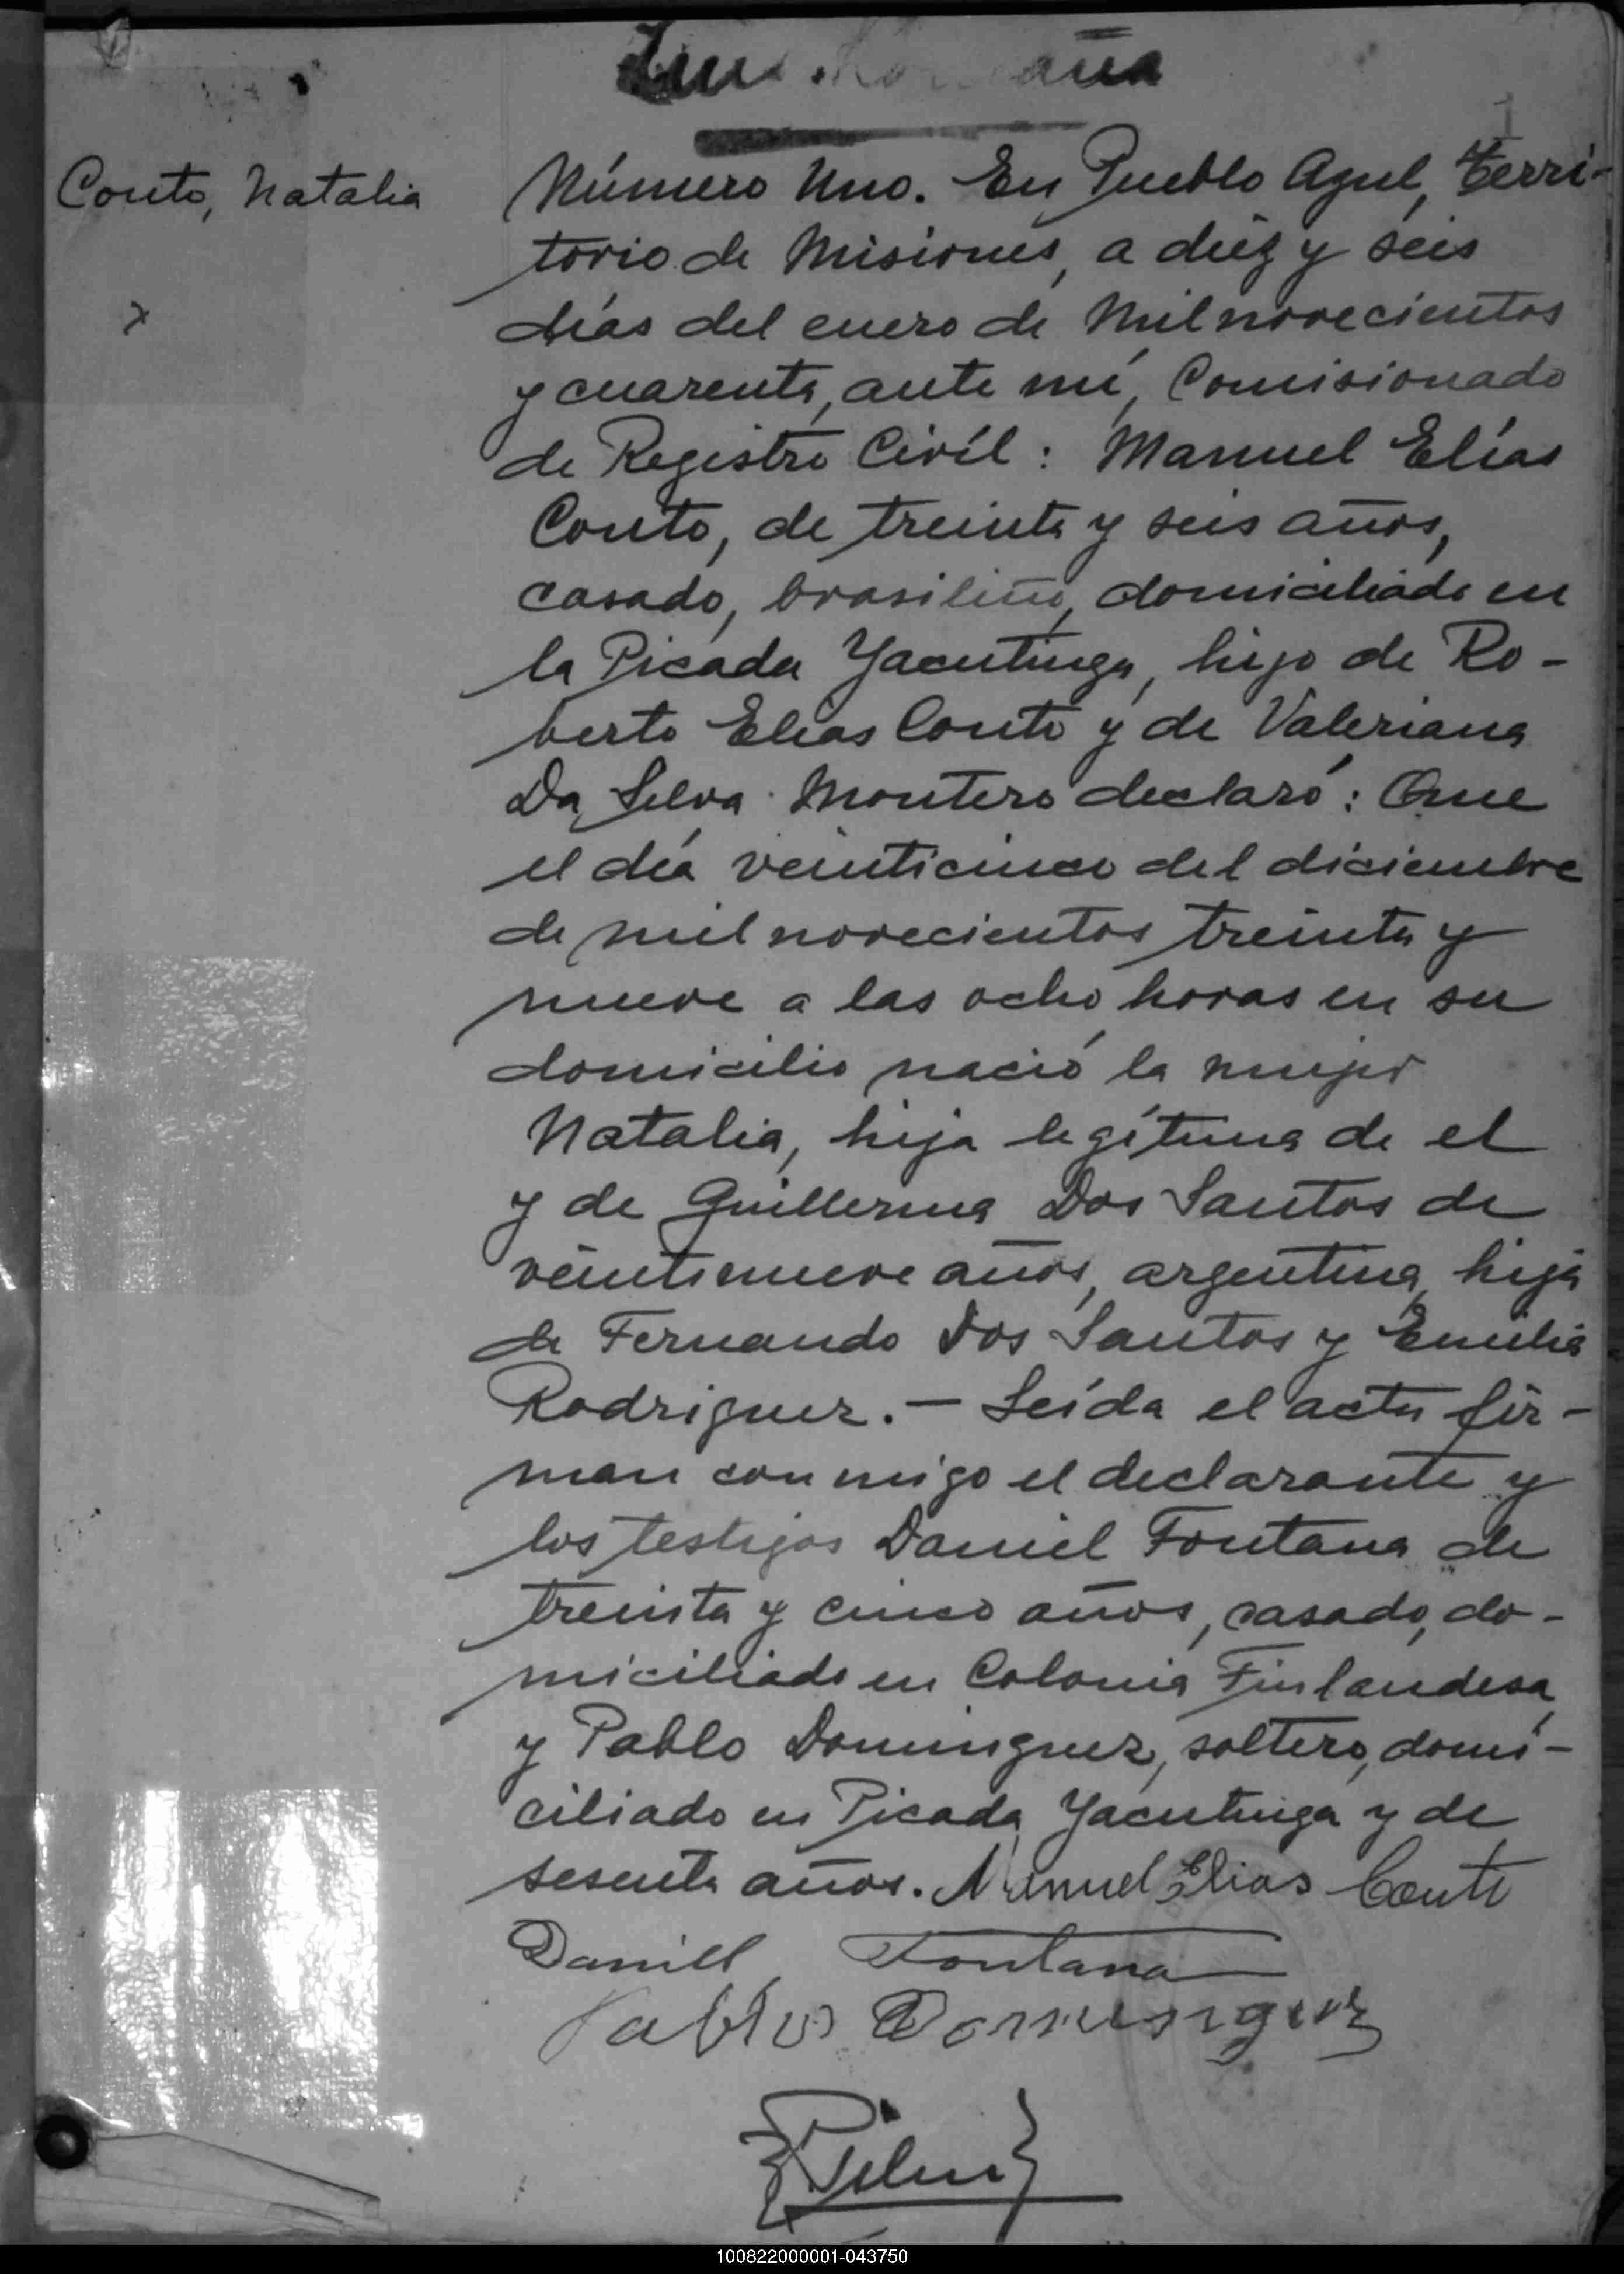 Couto, Natalia
Número Uno. En Pueblo Azul, Terri-
torio de Misiones, a diez y seis
días del enero de Mil novecientos
y cuarenta, ante mí, Comisionado
de Registro Civíl: Manuel Elías
Couto, de treinta y seis años,
casado, brasileño, domiciliado en
la Picada Yacutinga, hijo de Ro-
berto Elías Couto y de Valeriana
Da Silva Montero declaró: Que
el día veinticinco del diciembre
de mil novecientos treinta y
nueve a las ocho horas en su
domicilio nació la mujer
Natalia, hija legítima de el
y de Guillerma Dos Santos de
veintinueve años, argentina, hija
de Fernando Dos Santos y Emilia
Rodriguez. — Leída el acta fir-
man conmigo el declarante y
los testigos Daniel Fontana de
treinta y cinco años, casado, do-
miciliado en Colonia Finlandesa
y Pablo Dominguez, soltero, domi-
ciliado en Picada Yacutinga y de
sesenta años. Manuel Elias Couto
Daniel Fontana
Pablo Dominguez
100822000001-043750